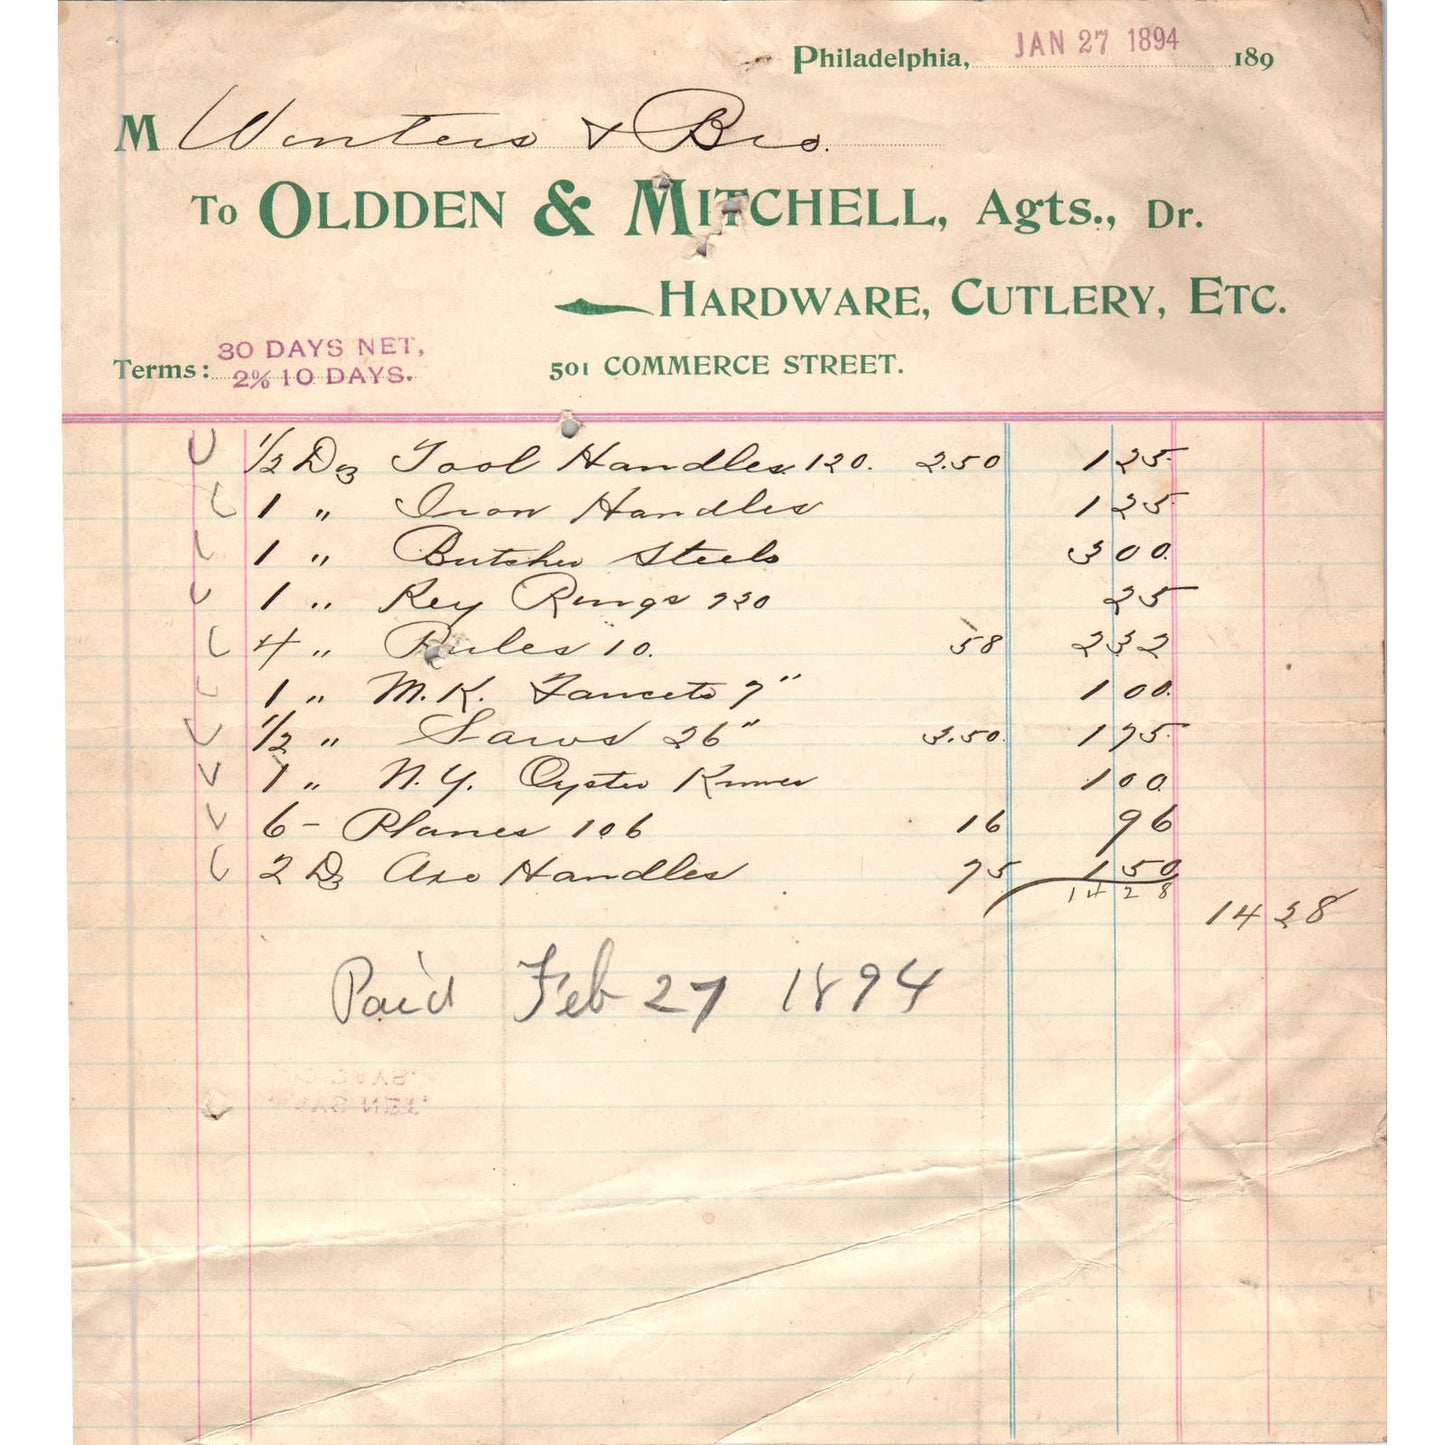 Philadelphia, JAN 27 1894 189
M Winters & Bro.
To OLDDEN & MITCHELL, Agts., Dr.
HARDWARE, CUTLERY, ETC.
Terms: 30 DAYS NET,
2% 10 DAYS.
501 COMMERCE STREET.
1/2 Dz Tool Handles 120. 2.50 1 25
1 " Iron Handles 1 25
1 " Butcher Steels 3 00
1 " Key Rings 220 25
4 " Rules 10. 58 2 32
1 " M.K. Faucets 7" 1 00
1/2 " Saws 26" 3.50 1 75
1 " N.Y. Oyster Knives 1 00
6 - Planes 106 16 96
2 Dz Axe Handles 75 1 50
14 28
14 28
Paid Feb 27 1894